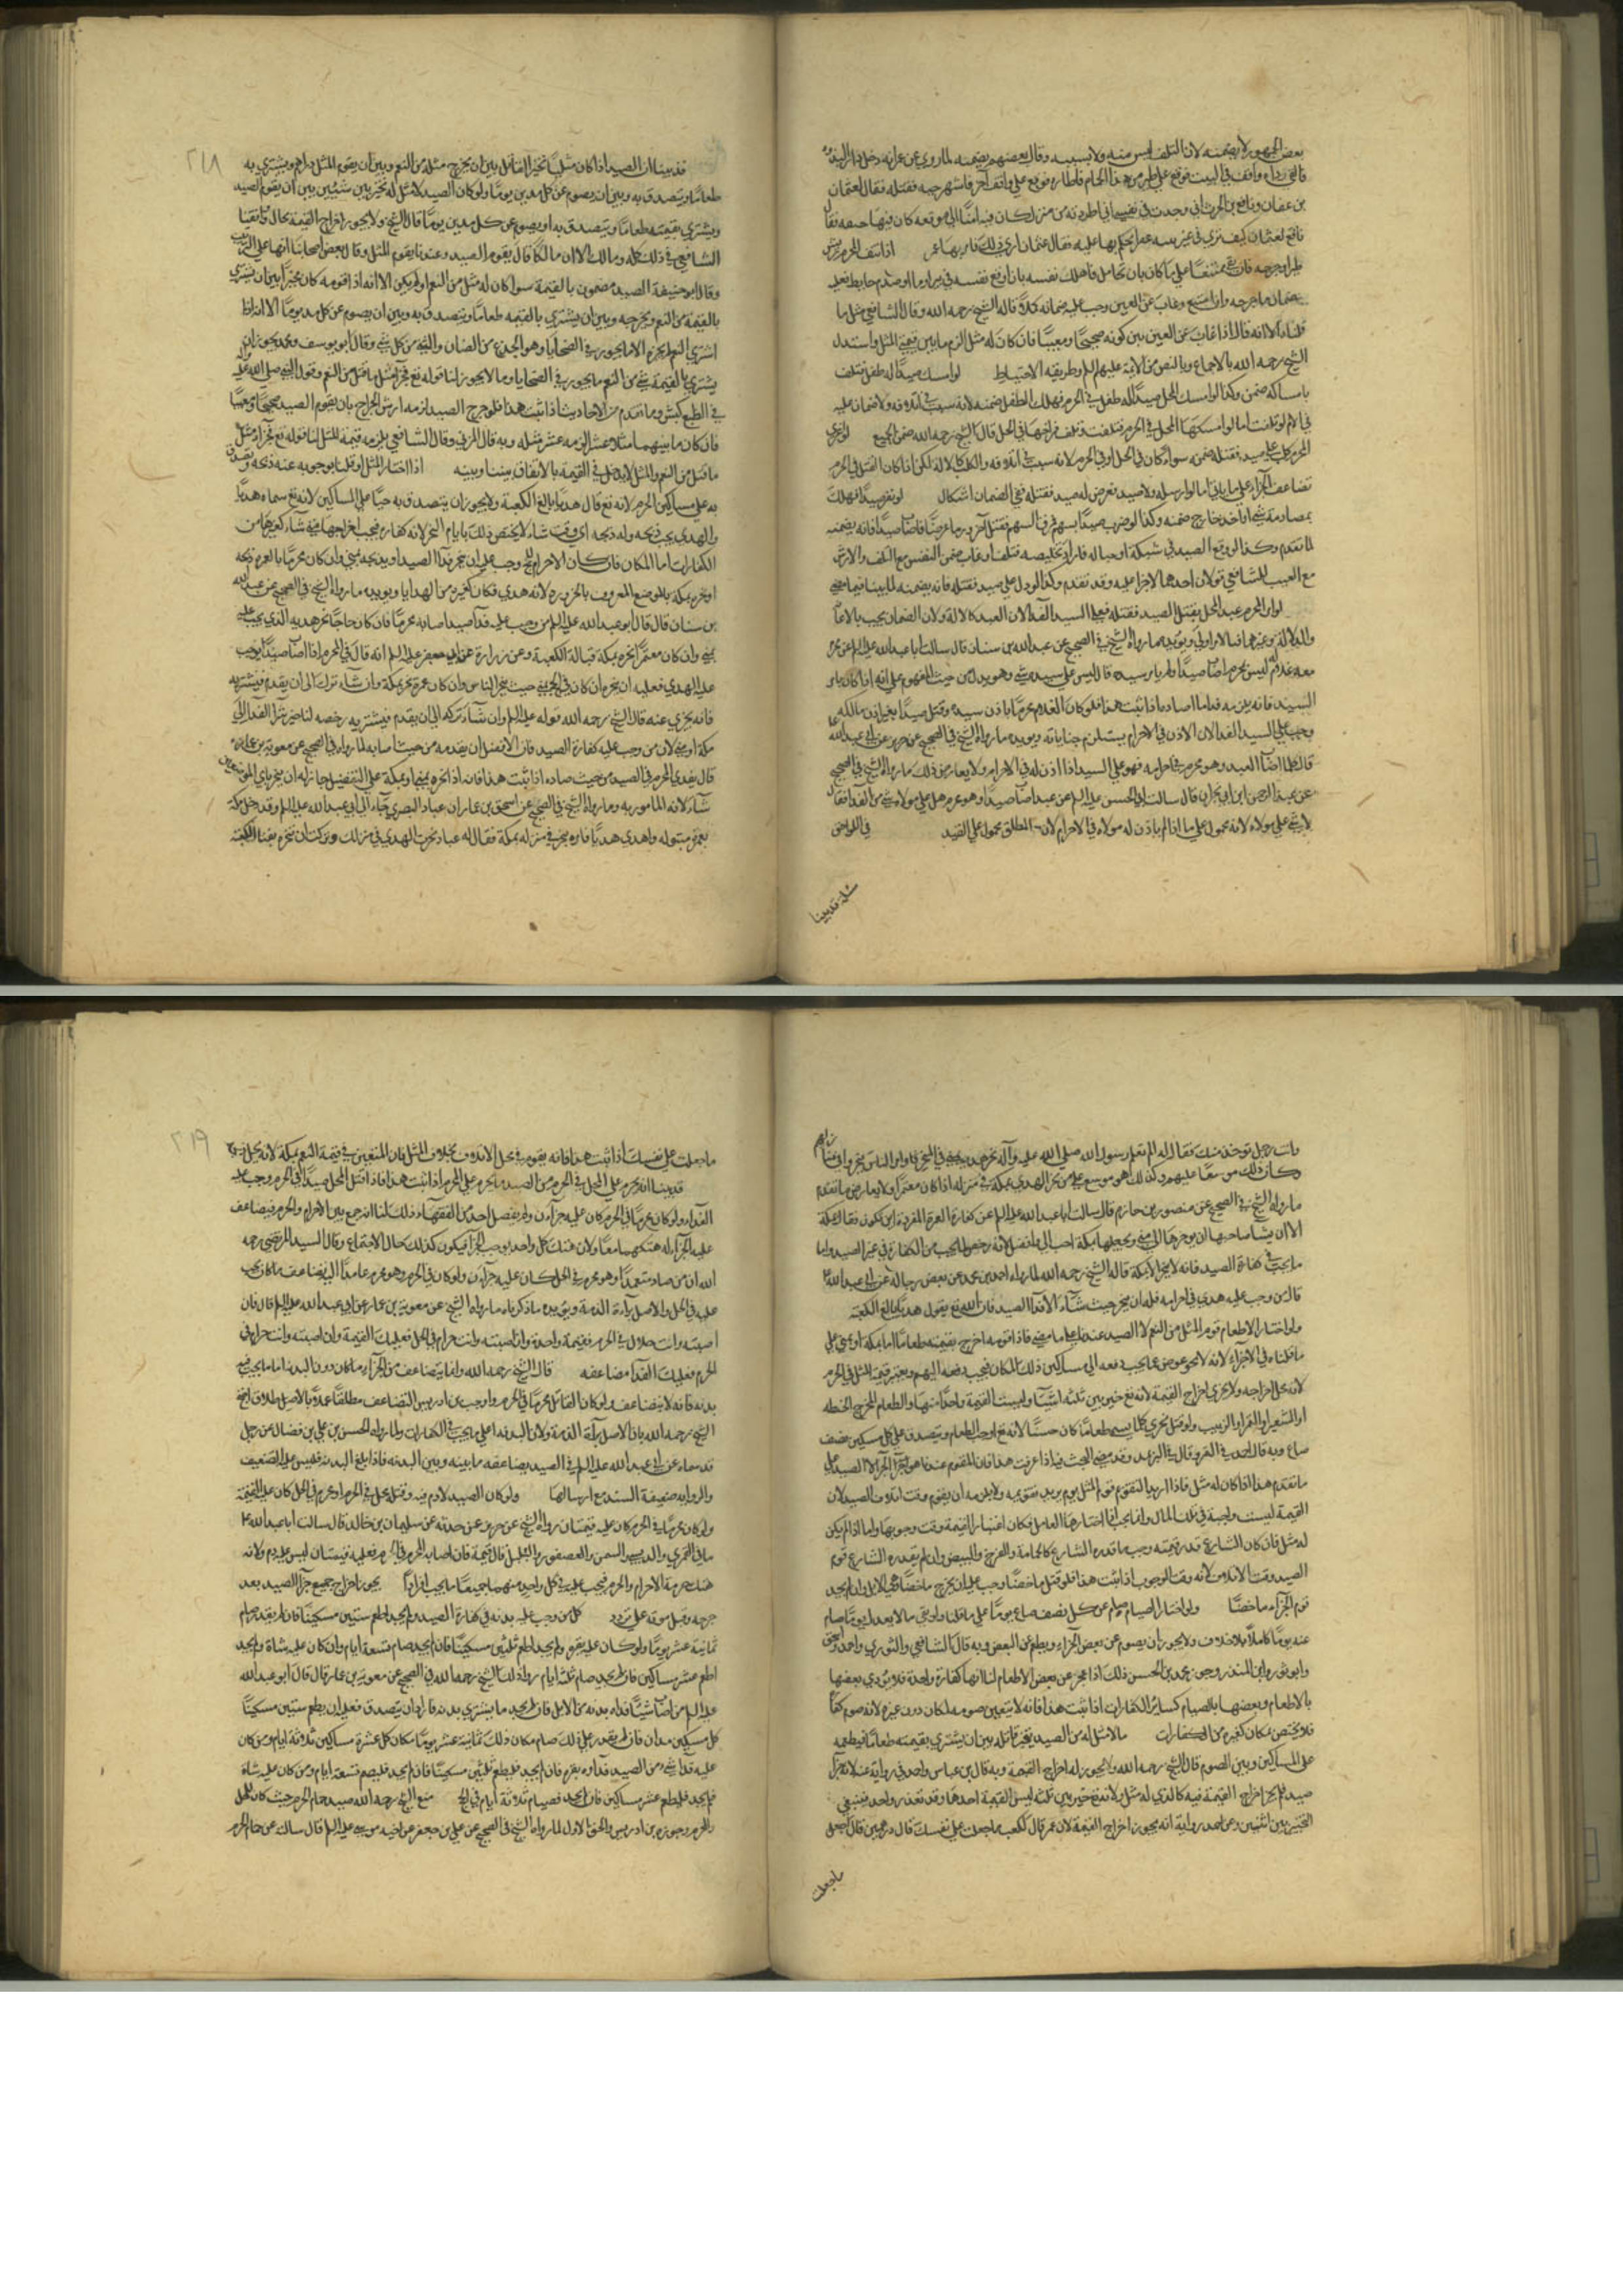 بعض الجمهور لا يضمنه لان التلف ليس منه ولا بسببه وقال بعضهم يضمنه لما روي عن عمر انه دخل دار الندوة
فالقى رداءه على واقف في البيت فوقع عليه طير من هذا الحمام فاطاره فوقع على واقف اخر فانتهزته حية فقتلته فقال لعثمان
بن عفان ونافع بن الحرث اني وجدت في نفسي اني اطردته من منزلة كان فيها امنا الى موقعة كان فيها حتفه فقال
نافع لعثمان كيف ترى في عنز ثنية عفراء يحكم بها عليه فقال عثمان ارى ذلك فامر بها عمر اذا نتف المحرم ريش
ضمان ما جرحه وان امتنع وغاب عن العين وجب عليه ضمانه كملا قاله الشيخ رحمه الله وقال الشافعي مثل ما
قلناه الا انه قال اذا غاب عن العين بين كونه صحيحا ومعيبا فان كان له مثل الزم ما بين قيمة المثل واستدل
الشيخ رحمه الله بالاجماع وبالنص من الائمة عليهم السلم وطريقة الاحتياط لو امسك صيدا له طفل فتلف
بامساكه ضمن وكذا لو امسك المحل صيدا له طفل في الحرم فهلك الطفل ضمنه لانه سبب في اتلافه ولا ضمان عليه
في الام لو تلفت اما لو امسكها المحل في الحرم فتلفت وتلف فراخها في الحل قال الشيخ رحمه الله ضمن الجميع لو اغرى
المحرم كلبه على صيد فقتله ضمنه سواء كان في الحل او في الحرم لانه سبب في اتلافه والكلب كالآلة لكن اذا كان القتل في الحرم
تضاعف الجزاء على ما ياتي اما لو ارسله ولا صيد فعرض له صيد فقتله ففي الضمان اشكال لو نفر صيدا فهلك
بمصادمة شيء او اخذه جارح ضمنه وكذا لو ضرب صيدا بسهم فمرق السهم فقتل آخر ورمى عرضا فاصاب صيدا فانه يضمنه
لما تقدم وكذا لو وقع الصيد في شبكة او حبالة فاراد تخليصه فتلف او عاب ضمن النفس مع التلف والارش
مع العيب للشافعي قولان احدهما لا جزاء عليه وقد تقدم وكذا لو دل على صيد فقتله فانه يضمنه لما بينا فيما مضى
لو امر المحرم عبده المحل بقتل الصيد فقتله فعلى السيد الفداء لان العبد كالآلة ولان الضمان يجب بالاعانة
معه غلام له ليس بمحرم اصاب صيدا ولم يامره سيده قال ليس على سيده شيء وهو يدل من حيث المفهوم على انه اذا كان بامر
السيد فانه يلزمه فداء ما اصاده اذا ثبت هذا فلو كان الغلام محرما باذن سيده وقتل صيدا بغير اذن مالكه
وجب على السيد الفداء لان الاذن في الاحرام يستلزم جناياته ويؤيده ما رواه الشيخ في الصحيح عن حريز عن ابي عبد الله
قال كلما اصاب العبد وهو محرم في احرامه فهو على السيد اذا اذن له في الاحرام ولا يعارض ذلك ما رواه الشيخ في الصحيح
عن عبد الرحمن ابن ابي نجران قال سالت ابا الحسن عليه السلم عن عبد اصاب صيدا وهو محرم هل على مولاه شيء من الفداء فقال
لا شيء على مولاه لانه محمول على ما اذا لم ياذن له مولاه في الاحرام لان المطلق يحمل على المقيد في اللواحق
مسئلة قد بينا
٢١٨
قد بينا ان الصيد اذا كان مثليا تخير القاتل بين ان يخرج مثله من النعم وبين ان يقوم المثل دراهم ويشتري به
طعاما ويتصدق به وبين ان يصوم عن كل مدين يوما ولو كان الصيد لا مثل له تخير بين شيئين بين ان يقوم الصيد
ويشتري بقيمته طعاما ويتصدق به او يصوم عن كل مدين يوما قال الشيخ ولا يجوز اخراج القيمة بحال وافقنا
الشافعي في ذلك كله ومالك الا ان مالكا قال يقوم الصيد وعندنا يقوم المثل وقال بعض اصحابنا انها على الترتيب
وقال ابو حنيفة الصيد مضمون بالقيمة سواء كان له مثل من النعم او لم يكن الا انه اذا قومه كان مخيرا بين ان يشتري
بالقيمة من النعم ويخرجه وبين ان يشتري بالقيمة طعاما ويتصدق به وبين ان يصوم عن كل مد يوما الا انه اذا
اشترى النعم لم يجزه الا ما يجوز في الضحايا وهو الجذع من الضان والثني من كل شيء وقال ابو يوسف ومحمد يجوز ان
يشتري بالقيمة شيء من النعم ما يجوز في الضحايا وما لا يجوز لنا قوله تع فجزاء مثل ما قتل من النعم وقول النبي صلى الله عليه واله
في الظبي كبش وما تقدم من الاحاديث اذا ثبت هذا فلو جرح الصيد لزمه ارش الجراح بان يقوم الصيد صحيحا ومعيبا
فان كان ما بينهما مثلا عشرا لزمه عشر مثله وبه قال المزني وقال الشافعي يلزمه قيمة المثل لنا قوله تع فجزاء مثل
ما قتل من النعم والمثل لا يدخل في القيمة بالاتفاق بيننا وبينه اذا اختار المثل او قلنا بوجوبه عينه ذبحه وتصدق
به على مساكين الحرم لانه تع قال هديا بالغ الكعبة ولا يجوز ان يتصدق به حيا على المساكين لانه تع سماه هديا
والهدي يجب ذبحه وله ذبحه اي وقت شاء لا يختص ذلك بايام النحر لانه كفارة فيجب اخراجها متى شاء كغيرها من
الكفارات اما المكان فان كان الاحرام للحج وجب عليه ان ينحر فداء الصيد او يذبحه بمنى وان كان محرما بالعمرة ذبحه
او نحره بمكة بالموضع المعروف بالحزورة لانه هدي فكان كغيره من الهدايا ويؤيده ما رواه الشيخ في الصحيح عن عبد الله
بن سنان قال قال ابو عبد الله عليه السلم من وجب عليه فداء صيد اصابه محرما فان كان حاجا نحر هديه الذي يجب عليه
بمنى وان كان معتمرا نحره بمكة قبالة الكعبة وعن زرارة عن ابي جعفر عليه السلم انه قال في المحرم اذا اصاب صيدا فوجب
عليه الهدي فعليه ان ينحره ان كان في الحج بمنى حيث ينحر الناس وان كان عمرة نحر بمكة وان شاء ترك الى ان يقدم فيشتريه
فانه يجزي عنه قال الشيخ رحمه الله قوله عليه السلم وان شاء تركه الى ان يقدم فيشتريه رخصة لتاخير شراء الفداء الى
مكة او منى لان من وجب عليه كفارة الصيد فان الافضل ان يفديه من حيث اصابه لما رواه في الصحيح عن معوية بن عمار
قال يفدي المحرم فداء الصيد من حيث صاده اذا ثبت هذا فانه اذا نحره بمنى او بمكة على التفصيل جاز له ان ينحر باي المواضع
شاء لانه المامور به وما رواه الشيخ في الصحيح عن اسحق بن عمار ان عباد البصري جاء الى ابي عبد الله عليه السلم وقد دخل مكة
بعمرة مبتولة واهدى هديا فامر به فنحر في منزله بمكة فقال له عباد نحرت الهدي في منزلك وتركت ان تنحره بفناء الكعبة
وانت رجل يؤخذ منك فقال له الم تعلم ان رسول الله صلى الله عليه وآله نحر هديه بمنى في المنحر وامر الناس فنحروا في منازلهم
وكان ذلك موسعا عليهم وكذلك هو موسع على من نحر الهدي بمكة في منزله اذا كان معتمرا ولا يعارض ما تقدم
ما رواه الشيخ في الصحيح عن منصور بن حازم قال سالت ابا عبد الله عليه السلم عن كفارة العمرة المفردة اين تكون فقال بمكة
الا ان يشاء صاحبها ان يؤخرها الى منى ويجعلها بمكة احب الي وافضل لانه رخصة لما يجب من الكفارة في غير الصيد واما
ما يجب في كفارة الصيد فانه لا ينحر الا بمكة قاله الشيخ رحمه الله لما رواه احمد بن محمد عن بعض رجاله عن ابي عبد الله
قال من وجب عليه هدي في احرامه فله ان ينحر حيث شاء الا فداء الصيد فان الله تع يقول هديا بالغ الكعبة
ولو اختار الاطعام قوم المثل من النعم لا الصيد عندنا على ما مضى فاذا قومه اخرج بقيمته طعاما اما بمكة او بمنى على
ما قلناه في الاجزاء لانه عوض عما يجب دفعه الى مساكين ذلك المكان فيجب دفعه اليهم ويعتبر قيمة المثل في الحرم
لانه محل اخراجه ولا يجزي اخراج القيمة لانه تع خير بين ثلثة اشياء وليست القيمة واحدا منها والطعام المخرج الحنطة
او الشعير او التمر او الزبيب ولو قيل يجزي كلما يسمى طعاما كان حسنا لانه تع اوجب الطعام ويتصدق على كل مسكين بنصف
صاع وبه قال احمد في التمر وقال في البر مد وقد مضى البحث فيه اذا عرفت هذا فان المقوم عندنا هو الجزاء لا الصيد على
ما تقدم هذا اذا كان له مثل فاذا اريد التقويم قوم المثل يوم يريد تقويمه ولا يلزمه ان يقوم وقت اتلاف الصيد لان
القيمة ليست واجبة في تلك الحال وانما يجب اذا اختارها العامل فكان اعتبار القيمة وقت وجوبها واما اذا لم يكن
له مثل فان كان الشارع قدر قيمته وجب ما قدره الشارع كالحمامة والفرخ والبيض وان لم يقدره الشارع قوم
الصيد وقت الاتلاف لانه وقت الوجوب اذا ثبت هذا فلو قتل ماخضا وجب عليه ان يخرج ماخضا من الابل وان لم يجد
قوم الجزاء ماخضا ولو اختار الصيام صام عن كل نصف صاع يوما على ما قلناه ولو بقي ما لا يعدل يوما صام
عنه يوما كاملا بلا خلاف ولا يجوز ان يصوم عن بعض الجزاء ويطعم عن البعض وبه قال الشافعي والثوري واحمد واسحق
وابو ثور وابن المنذر وجوز محمد بن الحسن ذلك اذا عجز عن بعض الاطعام لنا انها كفارة واحدة فلا يؤدي بعضها
بالاطعام وبعضها بالصيام كسائر الكفارات اذا ثبت هذا فانه لا يتعين صومه لمكان دون غيره لانه صوم كفارة
فلا يختص بمكان كغيره من الكفارات ما لا مثل له من الصيد يخير قاتله بين ان يشتري بقيمته طعاما فيطعمه
على المساكين وبين الصوم قال الشيخ رحمه الله ولا يجوز له اخراج القيمة وبه قال بن عباس واحمد في رواية عنه لانه جزاء
صيد فلم يجز اخراج القيمة فيه كالذي له مثل ولانه تع خير بين ثلثة ليس القيمة احدها وقد تعذر واحد فيبقى
التخيير بين اثنين وعن احمد رواية انه يجوز اخراج القيمة لان عمر قال لكعب ما جعلت على نفسك قال درهمين قال اجعل
ما جعلت
٢١٩
ما جعلت على نفسك اذا ثبت هذا فانه يقوم في محل الاتلاف بخلاف المثل فان المتعين في قيمة النعم بمكة لانه محل ذبحه
قد بينا انه يحرم على المحل في الحرم من الصيد ما يحرم على المحرم اذا ثبت هذا فاذا قتل المحل صيدا في الحرم وجب عليه
الفداء ولو كان محرما في الحرم كان عليه جزاءان ولم يفصل احد من الفقهاء ذلك لنا انه جمع بين الاحرام والحرم فيضاعف
عليه الجزاء لهتكهما معا ولان هتك كل واحد يوجب الجزاء فيكون كذلك حال الاجتماع وقال السيد المرتضى رحمه
الله ان من صاد متعمدا وهو محرم في الحل كان عليه جزاءان ولو كان في الحرم وهو محرم عامدا اليه تضاعف ما كان يجب
عليه في الحل والاصل براءة الذمة ويؤيده ما ذكرناه ما رواه الشيخ عن معوية بن عمار عن ابي عبد الله عليه السلم قال فان
اصبته وانت حلال في الحرم فقيمة واحدة وان اصبته وانت حرام في الحل فعليك القيمة وان اصبته وانت حرام في
الحرم فعليك الفداء مضاعفه قال الشيخ رحمه الله وانما يتضاعف من الجزاء ما كان دون البدنة اما ما يجب فيه
بدنة فانه لا يتضاعف لو كان القاتل محرما في الحرم واوجب بن ادريس التضاعف مطلقا عملا بالاصل
الشيخ رحمه الله بان الاصل براءة الذمة ولان البدنة اعلى ما يجب في الكفارات ولما رواه الحسن بن علي بن فضال عن رجل
قد سماه عن ابي عبد الله عليه السلم في الصيد يضاعفه ما بينه وبين البدنة فاذا بلغ البدنة فليس عليه التضعيف
والرواية ضعيفة السند مع ارسالها ولو كان الصيد لا دم فيه وقتله محل في الحرم او محرم في الحل كان عليه القيمة
ولو كان محرما في الحرم كان عليه قيمتان رواه الشيخ عن حريز عمن حدثه عن سليمان بن خالد قال سالت ابا عبد الله
ما في القمري والدبسي والسمن والعصفور والبلبل قال قيمته فان اصابه المحرم في الحرم فعليه قيمتان ليس عليه دم ولانه
هتك حرمة الاحرام والحرم فيجب عليه في كل واحد منهما جميعا ما يجب انفرادا يجوز اخراج جميع جزاء الصيد بعد
جرحه وقبل موته على تردد كل من وجب عليه بدنة في كفارة الصيد ولم يجد اطعم ستين مسكينا فان لم يقدر صام
ثمانية عشر يوما ولو كان عليه بقرة ولم يجد اطعم ثلثين مسكينا فان لم يجد صام تسعة ايام وان كان عليه شاة ولم يجد
اطعم عشرة مساكين فان لم يجد صام ثلثة ايام روا ذلك الشيخ رحمه الله في الصحيح عن معوية بن عمار قال قال ابو عبد الله
عليه السلم من اصاب شيئا فداءه بدنة من الابل فان لم يجد ما يشتري بدنة فاراد ان يتصدق فعليه ان يطعم ستين مسكينا
كل مسكين مدا فان لم يقدر على ذلك صام مكان ذلك ثمانية عشر يوما مكان كل عشرة مساكين ثلاثة ايام ومن كان
عليه فداء شيء من الصيد فداؤه بقرة فان لم يجد فليطعم ثلثين مسكينا فان لم يجد فليصم تسعة ايام ومن كان عليه شاة
فلم يجد فليطعم عشرة مساكين فان لم يجد فصيام ثلاثة ايام في الحج منع الشيخ رحمه الله صيد حمام الحرم حيث كان للمحل
والمحرم وجوزه بن ادريس والحق الاول لما رواه الشيخ في الصحيح عن علي بن جعفر عن اخيه موسى عليه السلم قال سالته عن حمام الحرم